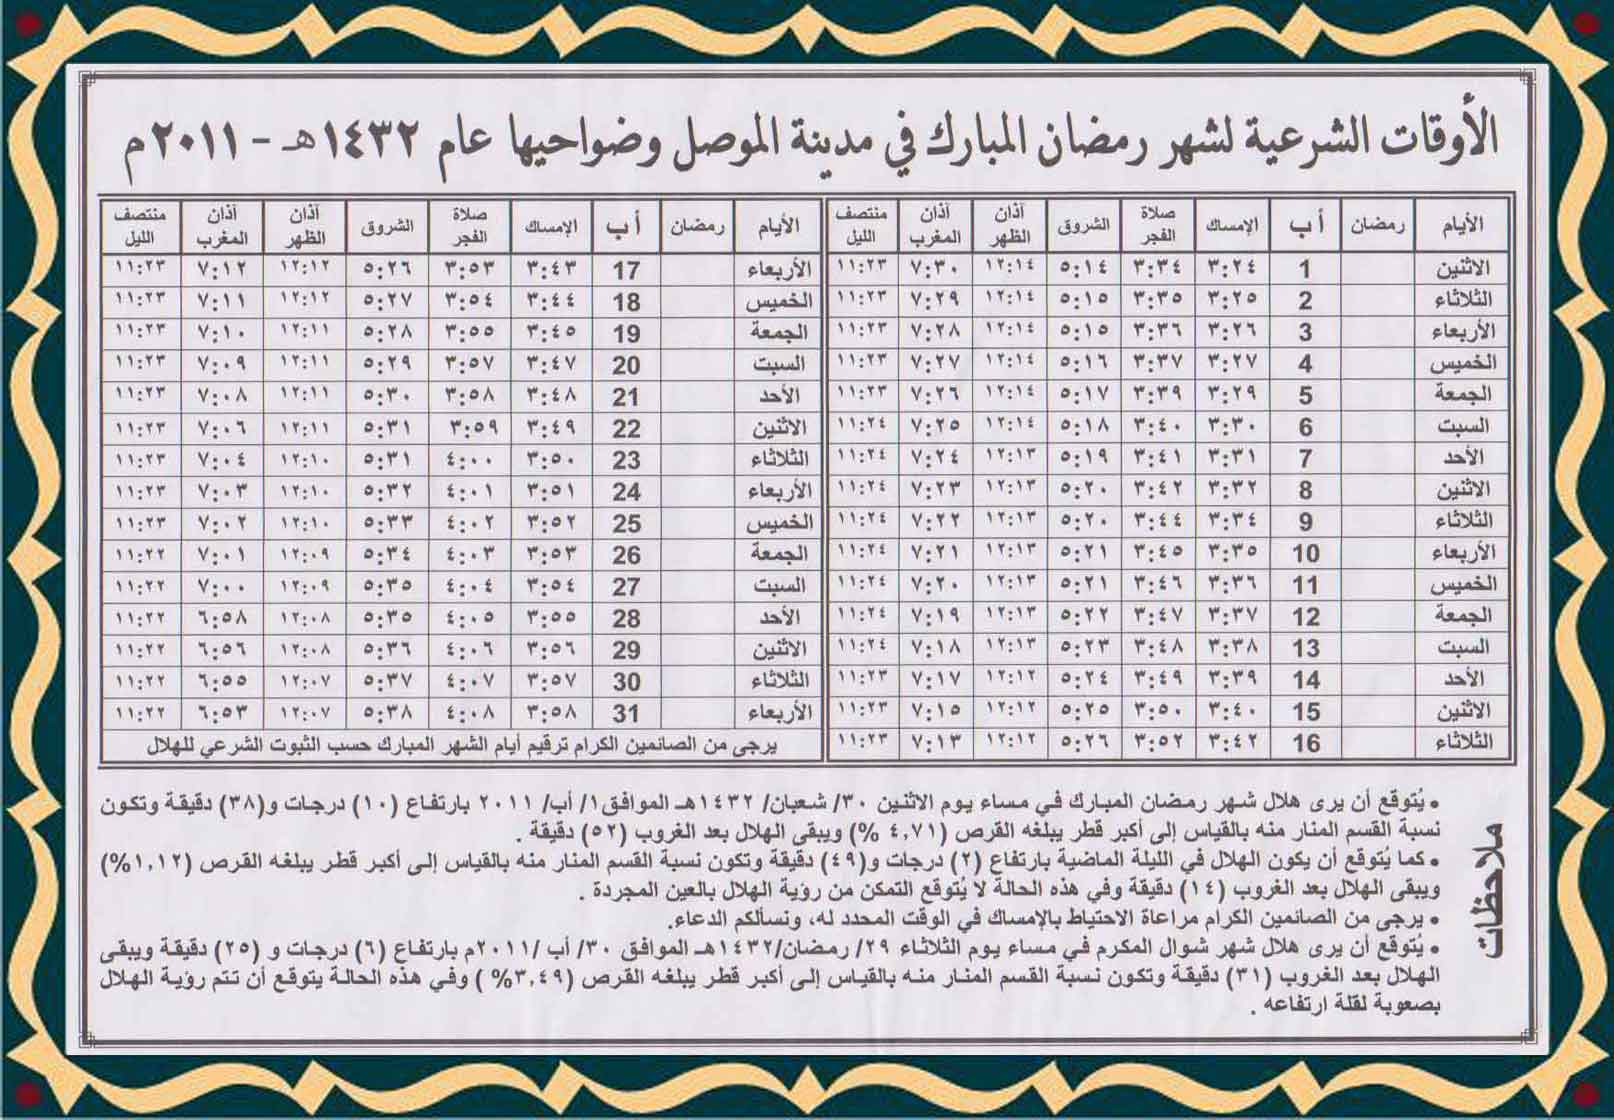 الأوقات الشرعية لشهر رمضان المبارك في مدينة الموصل وضواحيها عام ١٤٣٢هـ - ٢٠١١م
الأيام رمضان أب الإمساك صلاة الفجر الشروق آذان الظهر آذان المغرب منتصف الليل
الاثنين 1 ٣:٢٤ ٣:٣٤ ٥:١٤ ١٢:١٤ ٧:٣٠ ١١:٢٣
الثلاثاء 2 ٣:٢٥ ٣:٣٥ ٥:١٥ ١٢:١٤ ٧:٢٩ ١١:٢٣
الأربعاء 3 ٣:٢٦ ٣:٣٦ ٥:١٥ ١٢:١٤ ٧:٢٨ ١١:٢٣
الخميس 4 ٣:٢٧ ٣:٣٧ ٥:١٦ ١٢:١٤ ٧:٢٧ ١١:٢٣
الجمعة 5 ٣:٢٩ ٣:٣٩ ٥:١٧ ١٢:١٤ ٧:٢٦ ١١:٢٣
السبت 6 ٣:٣٠ ٣:٤٠ ٥:١٨ ١٢:١٤ ٧:٢٥ ١١:٢٤
الأحد 7 ٣:٣١ ٣:٤١ ٥:١٩ ١٢:١٣ ٧:٢٤ ١١:٢٤
الاثنين 8 ٣:٣٢ ٣:٤٢ ٥:٢٠ ١٢:١٣ ٧:٢٣ ١١:٢٤
الثلاثاء 9 ٣:٣٤ ٣:٤٤ ٥:٢٠ ١٢:١٣ ٧:٢٢ ١١:٢٤
الأربعاء 10 ٣:٣٥ ٣:٤٥ ٥:٢١ ١٢:١٣ ٧:٢١ ١١:٢٤
الخميس 11 ٣:٣٦ ٣:٤٦ ٥:٢١ ١٢:١٣ ٧:٢٠ ١١:٢٤
الجمعة 12 ٣:٣٧ ٣:٤٧ ٥:٢٢ ١٢:١٣ ٧:١٩ ١١:٢٤
السبت 13 ٣:٣٨ ٣:٤٨ ٥:٢٣ ١٢:١٣ ٧:١٨ ١١:٢٤
الأحد 14 ٣:٣٩ ٣:٤٩ ٥:٢٤ ١٢:١٢ ٧:١٧ ١١:٢٣
الاثنين 15 ٣:٤٠ ٣:٥٠ ٥:٢٥ ١٢:١٢ ٧:١٥ ١١:٢٣
الثلاثاء 16 ٣:٤٢ ٣:٥٢ ٥:٢٦ ١٢:١٢ ٧:١٣ ١١:٢٣
الأيام رمضان أب الإمساك صلاة الفجر الشروق آذان الظهر آذان المغرب منتصف الليل
الأربعاء 17 ٣:٤٣ ٣:٥٣ ٥:٢٦ ١٢:١٢ ٧:١٢ ١١:٢٣
الخميس 18 ٣:٤٤ ٣:٥٤ ٥:٢٧ ١٢:١٢ ٧:١١ ١١:٢٣
الجمعة 19 ٣:٤٥ ٣:٥٥ ٥:٢٨ ١٢:١١ ٧:١٠ ١١:٢٣
السبت 20 ٣:٤٧ ٣:٥٧ ٥:٢٩ ١٢:١١ ٧:٠٩ ١١:٢٣
الأحد 21 ٣:٤٨ ٣:٥٨ ٥:٣٠ ١٢:١١ ٧:٠٨ ١١:٢٣
الاثنين 22 ٣:٤٩ ٣:٥٩ ٥:٣١ ١٢:١١ ٧:٠٦ ١١:٢٣
الثلاثاء 23 ٣:٥٠ ٤:٠٠ ٥:٣١ ١٢:١٠ ٧:٠٤ ١١:٢٣
الأربعاء 24 ٣:٥١ ٤:٠١ ٥:٣٢ ١٢:١٠ ٧:٠٣ ١١:٢٣
الخميس 25 ٣:٥٢ ٤:٠٢ ٥:٣٣ ١٢:١٠ ٧:٠٢ ١١:٢٣
الجمعة 26 ٣:٥٣ ٤:٠٣ ٥:٣٤ ١٢:٠٩ ٧:٠١ ١١:٢٢
السبت 27 ٣:٥٤ ٤:٠٤ ٥:٣٥ ١٢:٠٩ ٧:٠٠ ١١:٢٢
الأحد 28 ٣:٥٥ ٤:٠٥ ٥:٣٥ ١٢:٠٨ ٦:٥٨ ١١:٢٢
الاثنين 29 ٣:٥٦ ٤:٠٦ ٥:٣٦ ١٢:٠٨ ٦:٥٦ ١١:٢٢
الثلاثاء 30 ٣:٥٧ ٤:٠٧ ٥:٣٧ ١٢:٠٧ ٦:٥٥ ١١:٢٢
الأربعاء 31 ٣:٥٨ ٤:٠٨ ٥:٣٨ ١٢:٠٧ ٦:٥٣ ١١:٢٢
يرجى من الصائمين الكرام ترقيم أيام الشهر المبارك حسب الثبوت الشرعي للهلال
ملاحظات
• يُتوقع أن يرى هلال شهر رمضان المبارك في مساء يوم الاثنين ٣٠/ شعبان/ ١٤٣٢هـ الموافق١/ أب/ ٢٠١١ بارتفاع (١٠) درجات و(٣٨) دقيقة وتكون
نسبة القسم المنار منه بالقياس إلى أكبر قطر يبلغه القرص (٤,٧١ %) ويبقى الهلال بعد الغروب (٥٢) دقيقة .
• كما يُتوقع أن يكون الهلال في الليلة الماضية بارتفاع (٢) درجات و(٤٩) دقيقة وتكون نسبة القسم المنار منه بالقياس إلى أكبر قطر يبلغه القرص (١,١٢%)
ويبقى الهلال بعد الغروب (١٤) دقيقة وفي هذه الحالة لا يُتوقع التمكن من رؤية الهلال بالعين المجردة .
• يرجى من الصائمين الكرام مراعاة الاحتياط بالإمساك في الوقت المحدد له، ونسألكم الدعاء.
• يُتوقع أن يرى هلال شهر شوال المكرم في مساء يوم الثلاثاء ٢٩/ رمضان/١٤٣٢هـ الموافق ٣٠/ أب /٢٠١١م بارتفاع (٦) درجات و (٢٥) دقيقة ويبقى
الهلال بعد الغروب (٣١) دقيقة وتكون نسبة القسم المنار منه بالقياس إلى أكبر قطر يبلغه القرص (٣,٤٩% ) وفي هذه الحالة يتوقع أن تتم رؤية الهلال
بصعوبة لقلة ارتفاعه .